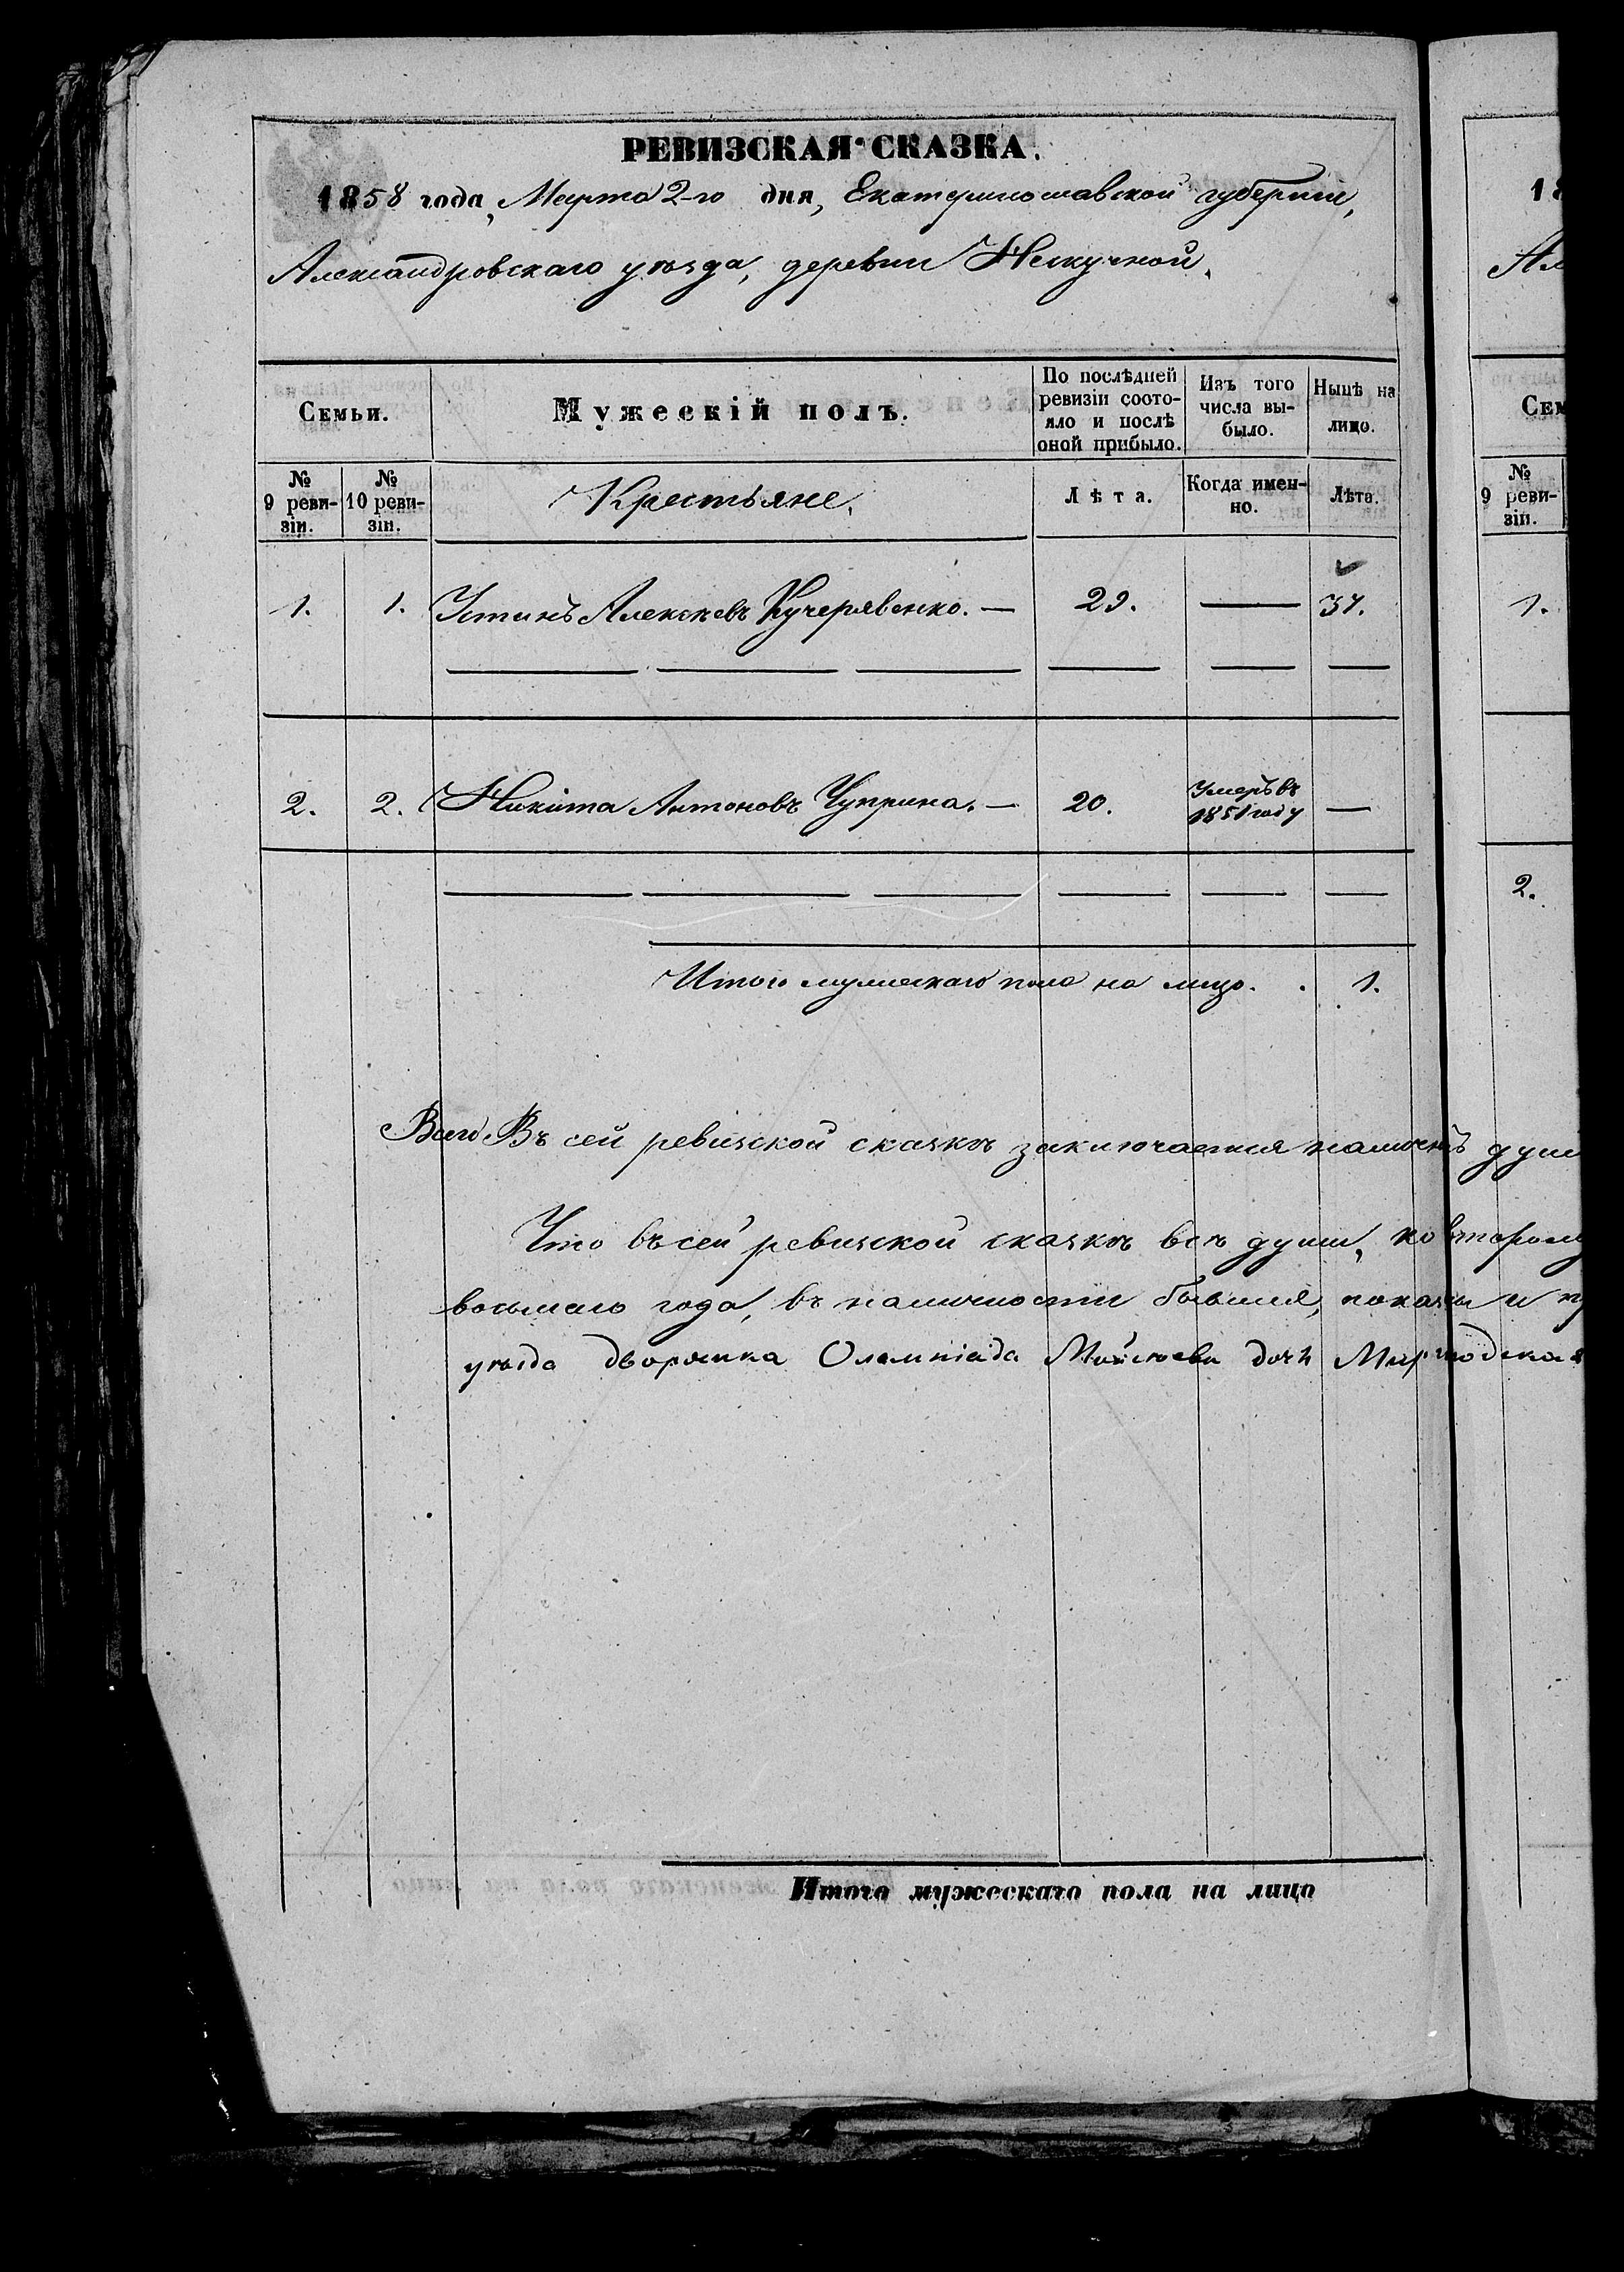 РЕВИЗСКАЯ СКАЗКА.
1858 года, Марта 2-го дня, Екатеринославской губернии,
Александровскаго уѣзда, деревни Нескучной.
Семьи.
Мужескій полъ.
По послѣдней ревизіи состояло и послѣ оной прибыло.
Изъ того числа выбыло.
Нынѣ на лицо.
№ 9 ревизіи.
№ 10 ревизіи.
Крестьяне.
Лѣта.
Когда именно.
Лѣта.
1. 1. Устинъ Алексѣевъ Кучерявенко. — 29. — 37.
2. 2. Никита Антоновъ Чуприна. — 20. Умеръ въ 1851 году —
Итого мужескаго пола на лицо. . 1.
Всего Въ сей ревизской сказкѣ заключается наличныхъ душ
Что въ сей ревизской сказкѣ всѣ души, ко второму
восьмаго года, въ наличности бывшія, показаны и
уѣзда дворянка Олимпіада дочь
Итого мужескаго пола на лицо
18
Ал
Сем
№ 9 ревизіи.
1.
2.